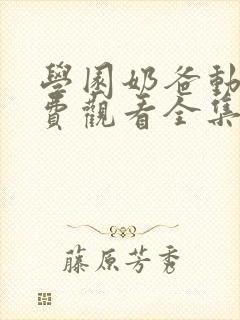 學園奶爸動
費觀看全集
藤原芳秀